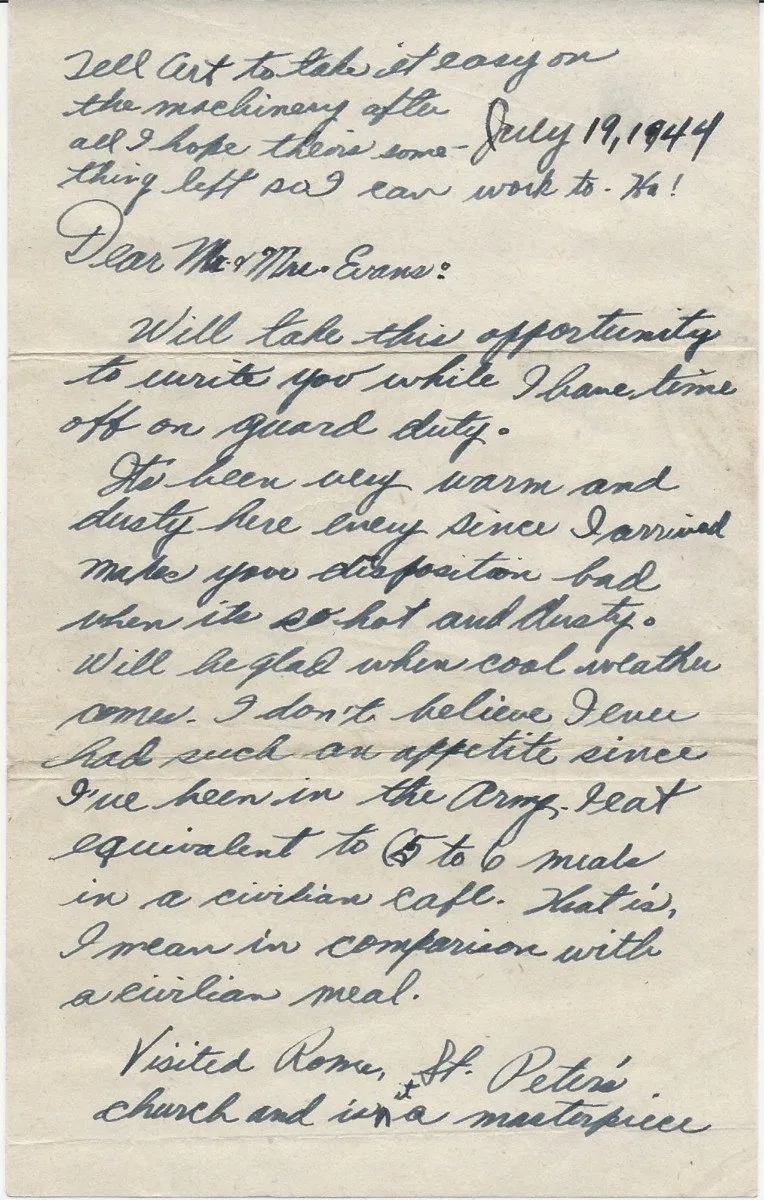 Tell Art to take it easy on
the machinery after
all I hope theirs some-
thing left so I can work to. Ha!
July 19, 1944
Dear Mr. & Mrs. Evans:
Will take this opportunity
to write you while I have time
off on guard duty.
It's been very warm and
dusty here every since I arrived
makes your disposition bad
when its so hot and dusty.
Will be glad when cool weather
comes. I don't believe I ever
had such an appetite since
I've been in the Army. I eat
equivalent to 5 to 6 meals
in a civilian cafe. That is,
I mean in comparison with
a civilian meal.
Visited Rome, St. Peter's
church and is it a masterpiece